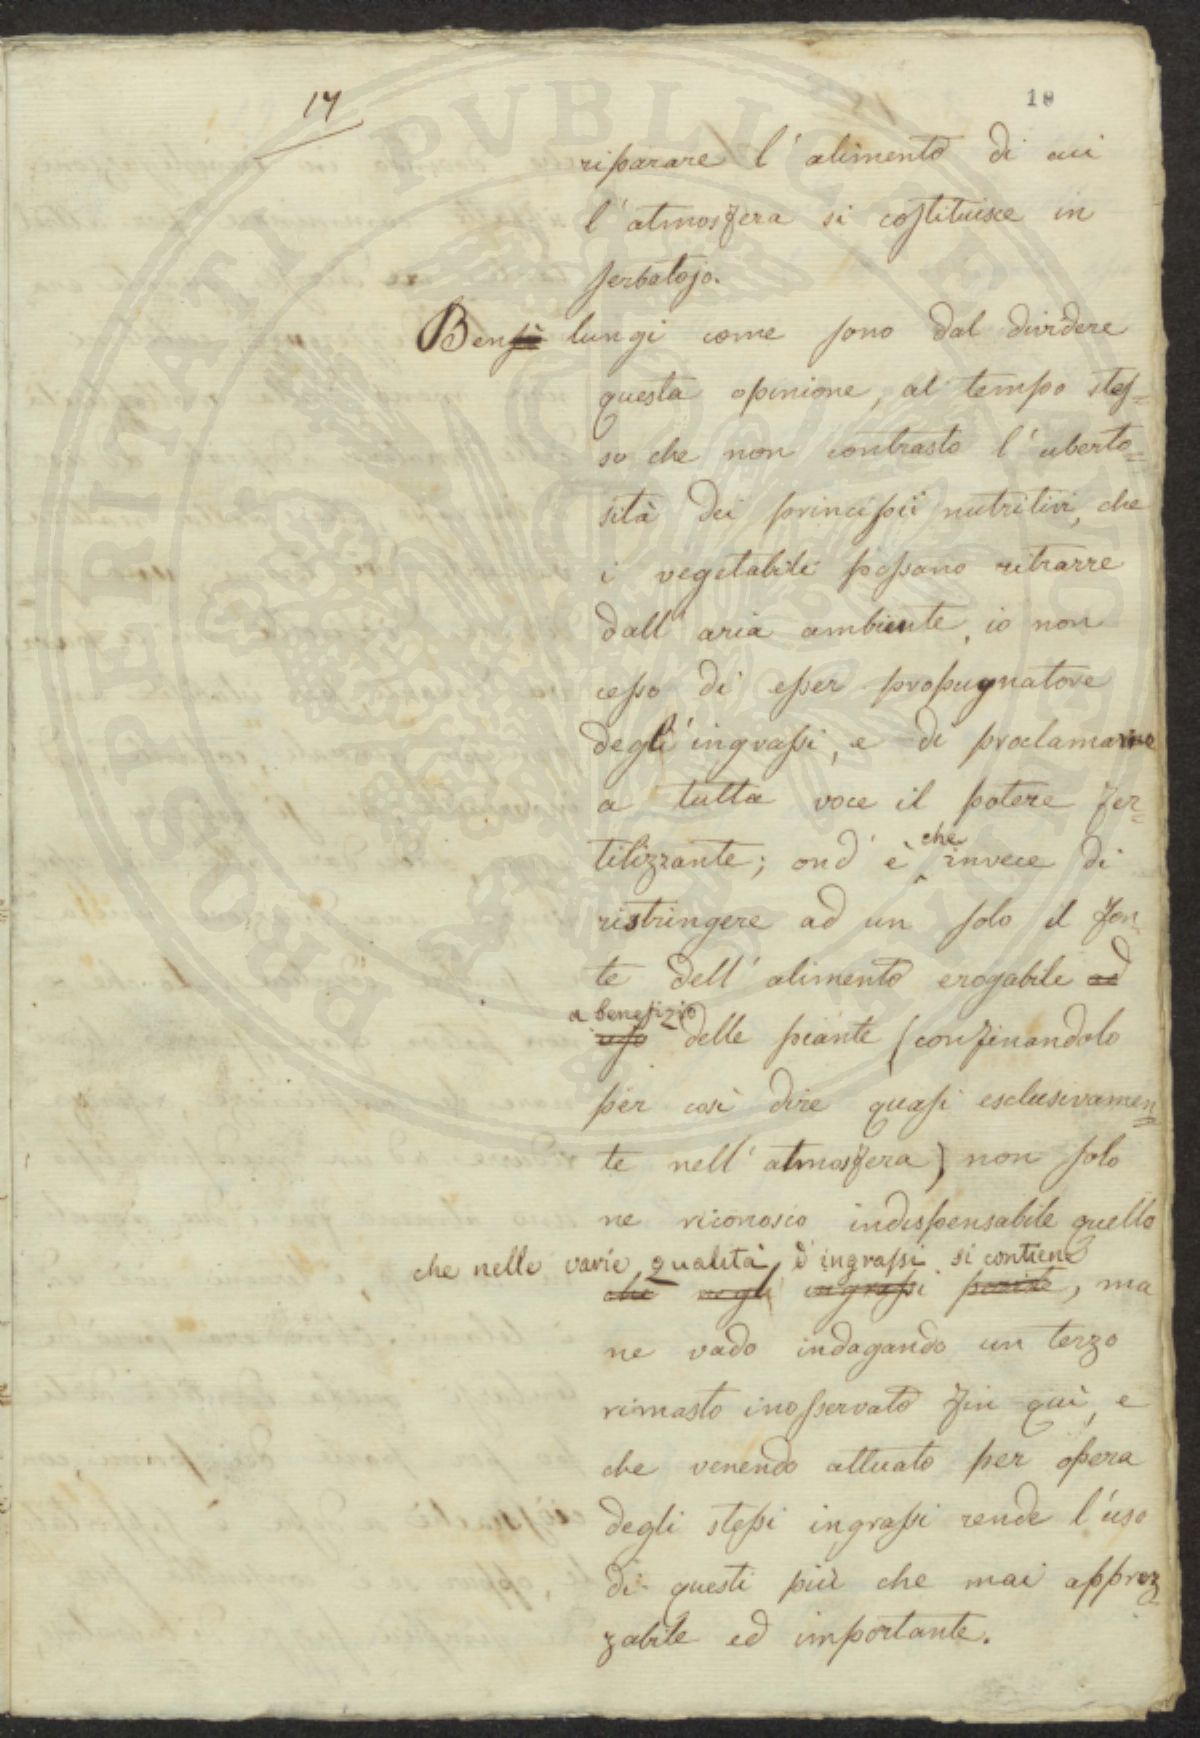 17
18
riparare l'alimento di cui
l'atmosfera si costituisce in
serbatojo.
Bensì lungi come sono dal dividere
questa opinione, al tempo stes=
so che non contrasto l'uberto=
sità dei principii nutritivi, che
i vegetabili possano ritrarre
dall'aria ambiente, io non
cesso di esser propugnatore
degli ingrassi, e di proclamarne
a tutta voce il potere fer=
tilizzante; ond'è che invece di
ristringere ad un solo il fon=
te dell'alimento erogabile ad
a benefizio
uso delle piante (confinandolo
per così dire quasi esclusivamen=
te nell'atmosfera) non solo
ne riconosco indispensabile quello
che nelle varie qualità d'ingrassi si contiene
che negli ingrassi, ma
ne vado indagando un terzo
rimasto inosservato fin quì, e
che venendo attuato per opera
degli stessi ingrassi rende l'uso
di questi più che mai apprez=
zabile ed importante.
PROSPERITATI PUBLICAE